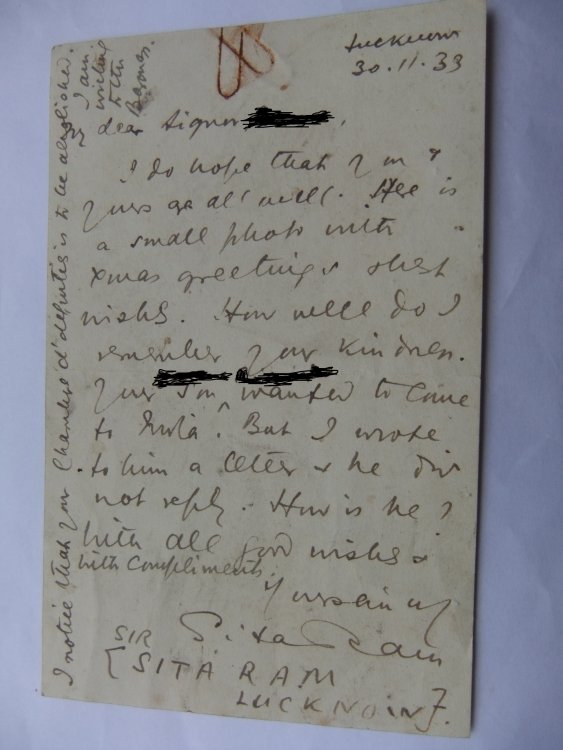 Lucknow
30.11.33
dear Signor
I do hope that you &
yours are all well. Here is
a small photo with
Xmas greetings & best
wishes. How well do I
remember your kindness.
Your son wanted to come
to India. But I wrote
to him a letter & he did
not reply. How is he?
With all good wishes &
with compliments
Yours sincerely
Sita Ram
[SIR
SITA RAM
LUCKNOW].
I notice that your Chambre d'deputies is to be abolished.
I am
writing
to the